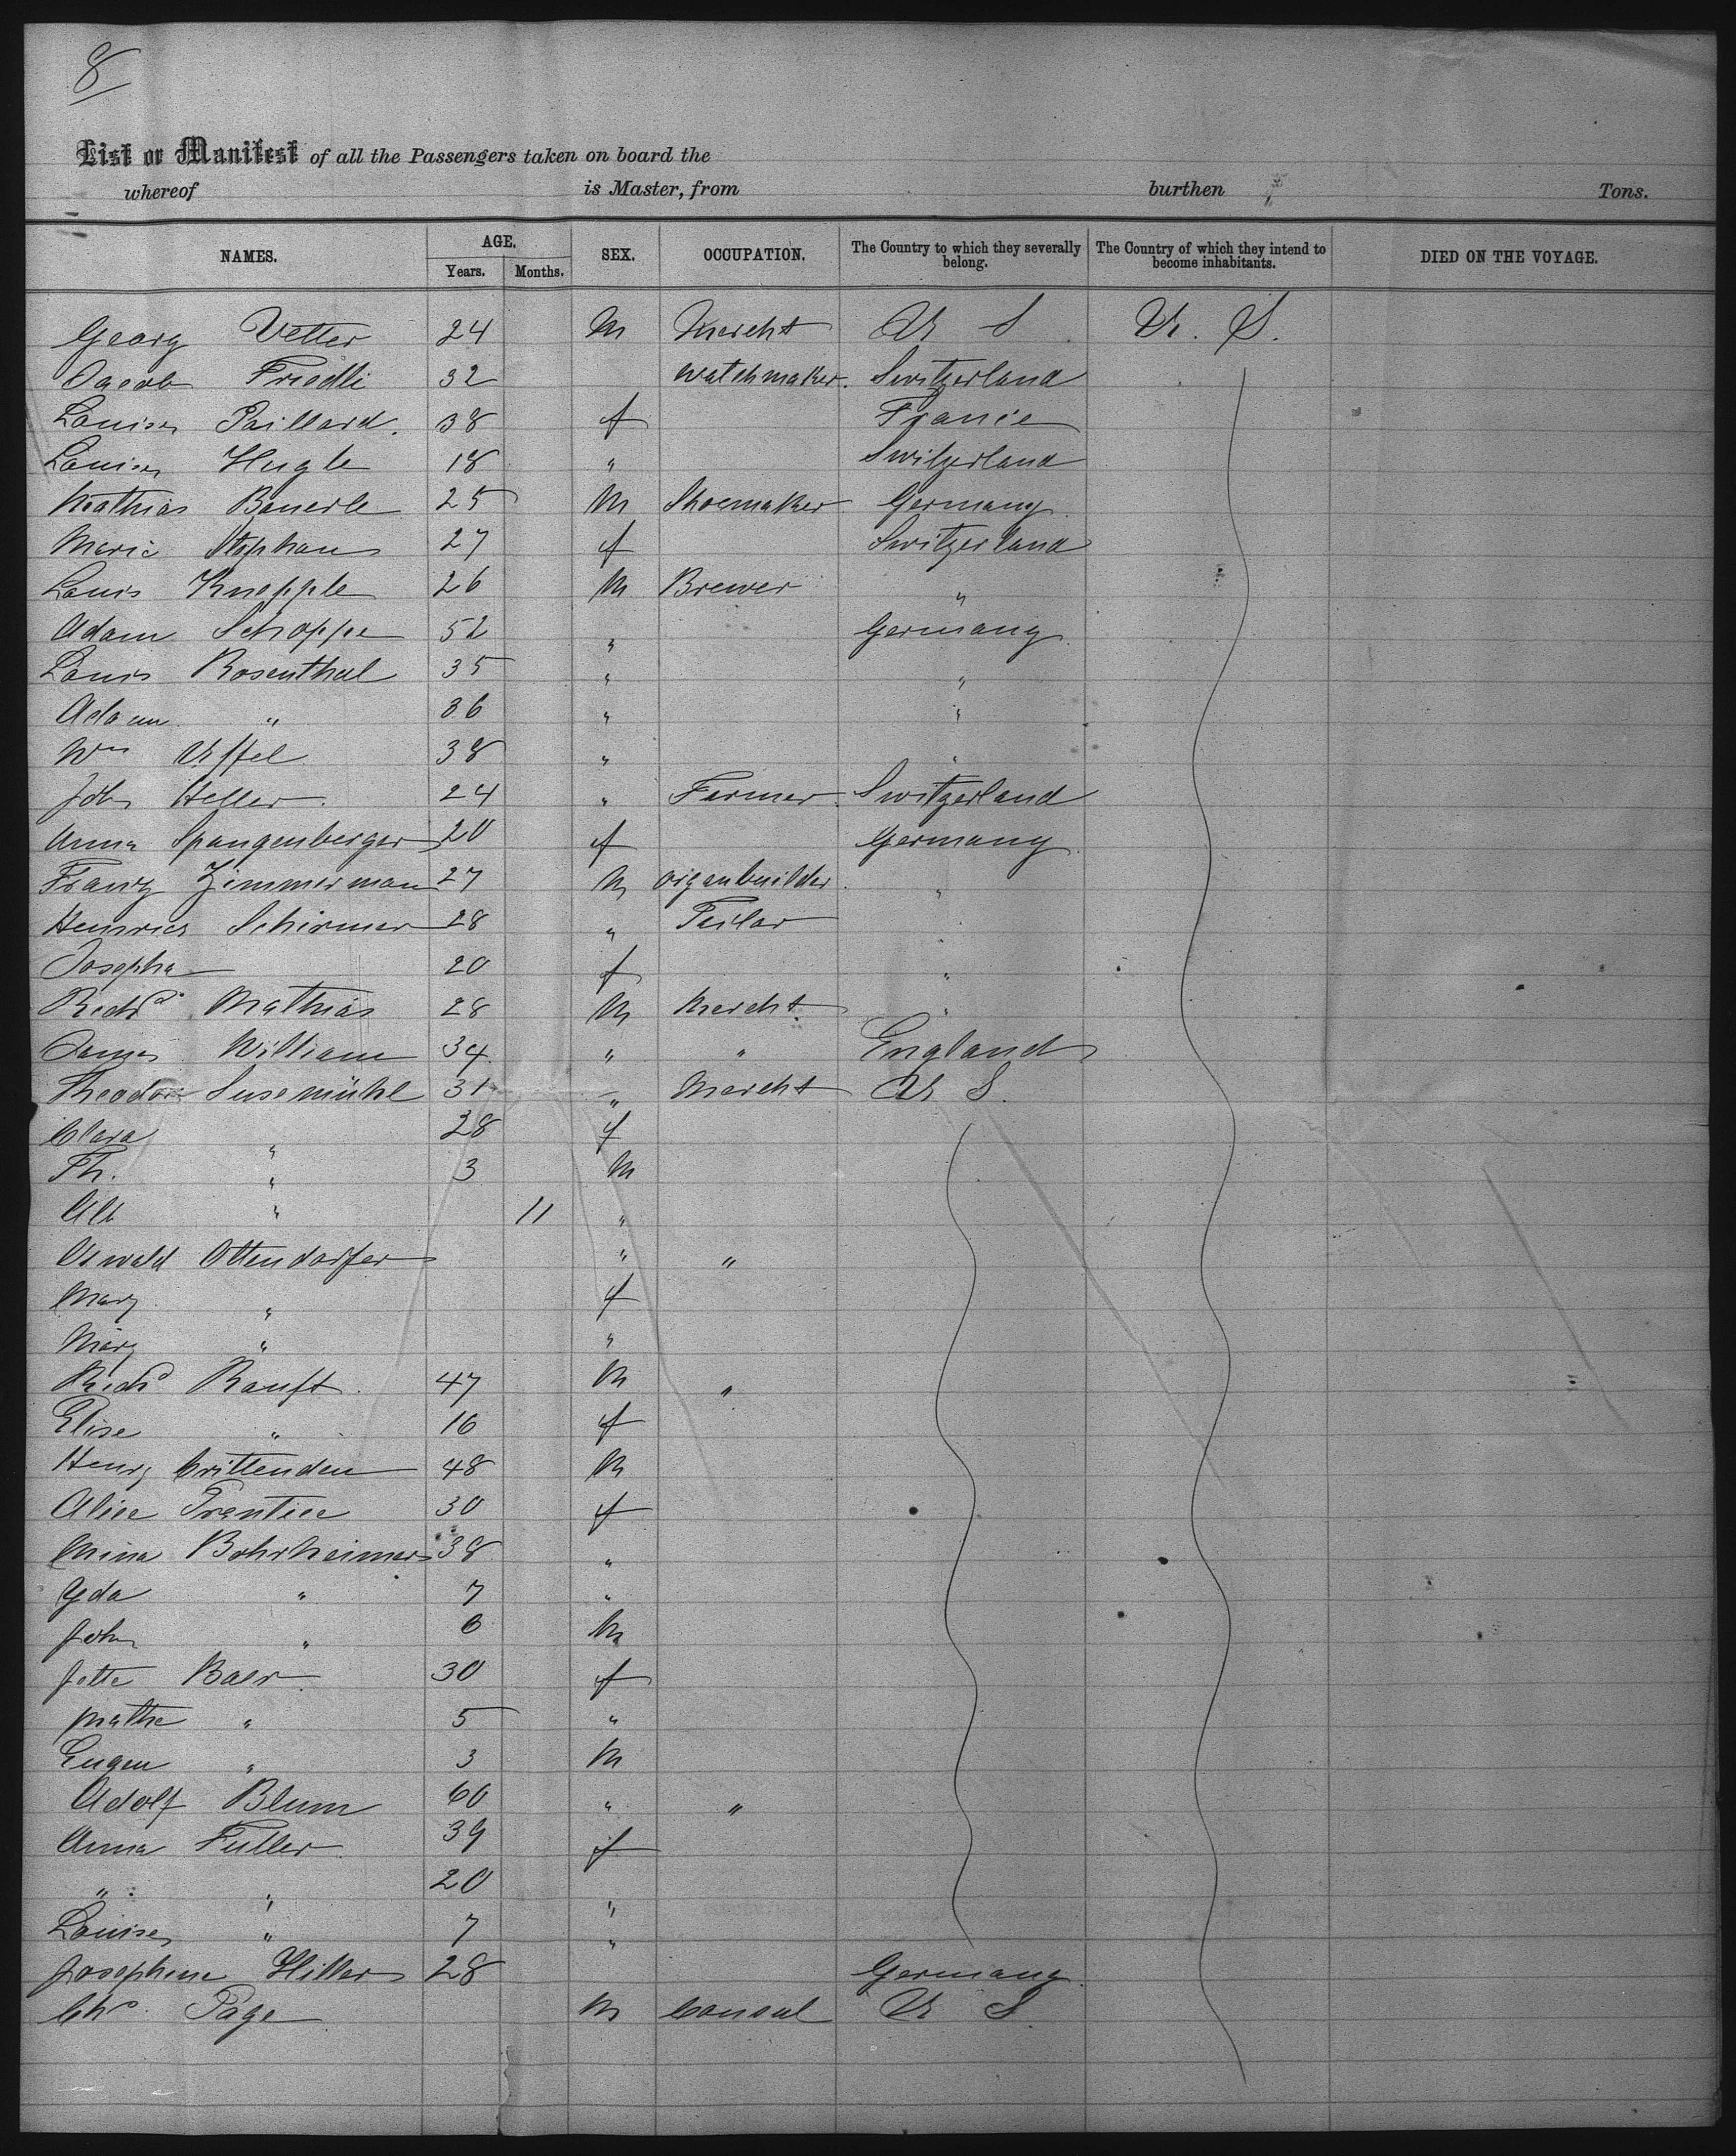 8
List or Manifest of all the Passengers taken on board the
whereof is Master, from burthen , Tons.
NAMES. AGE. Years. Months. SEX. OCCUPATION. The Country to which they severally belong. The Country of which they intend to become inhabitants. DIED ON THE VOYAGE.
Georg Vetter 24 M Mercht U S U. S.
Jacob Friedli 32 Watchmaker. Switzerland
Louise Paillard. 38 f France
Louise Hugle 18 " Switzerland
Mathias Bauerle 25 M Shoemaker Germany
Marie Stephan 27 f Switzerland
Louis Knopple 26 M Brewer "
Adam Schoppe 52 " Germany
Louis Rosenthal 35 " "
Adam " 36 " "
Wm Uffel 38 " "
Joh Heller 24 " Farmer Switzerland
Anna Spangenberger 20 f Germany
Franz Zimmerman 27 M Organbuilder "
Schirmer 28 " Tailor "
Josepha 20 f "
Richd Mathias 28 M Mercht "
James William 34 " " England
Theodor Susemühl 31 " Mercht U S.
Clara " 28 f
Th. " 3 M
Alb " 11 "
Oswald Ottendorfer " "
Mary " f
Mary " "
Richd Ranft 47 M "
Elise " 16 f
Henry Crittenden 48 M
Alice Prentice 30 f
Mina Bohrheimer 38 "
Yda " 7 "
John " 6 M
Jette Baer 30 f
Mathe " 5 "
Eugen " 3 M
Adolf Blum 60 " "
Anna Fuller 39 f
" " 20 "
Louise " 7 "
Josephine Hiller 28 Germany
Chs Page M Consul U S